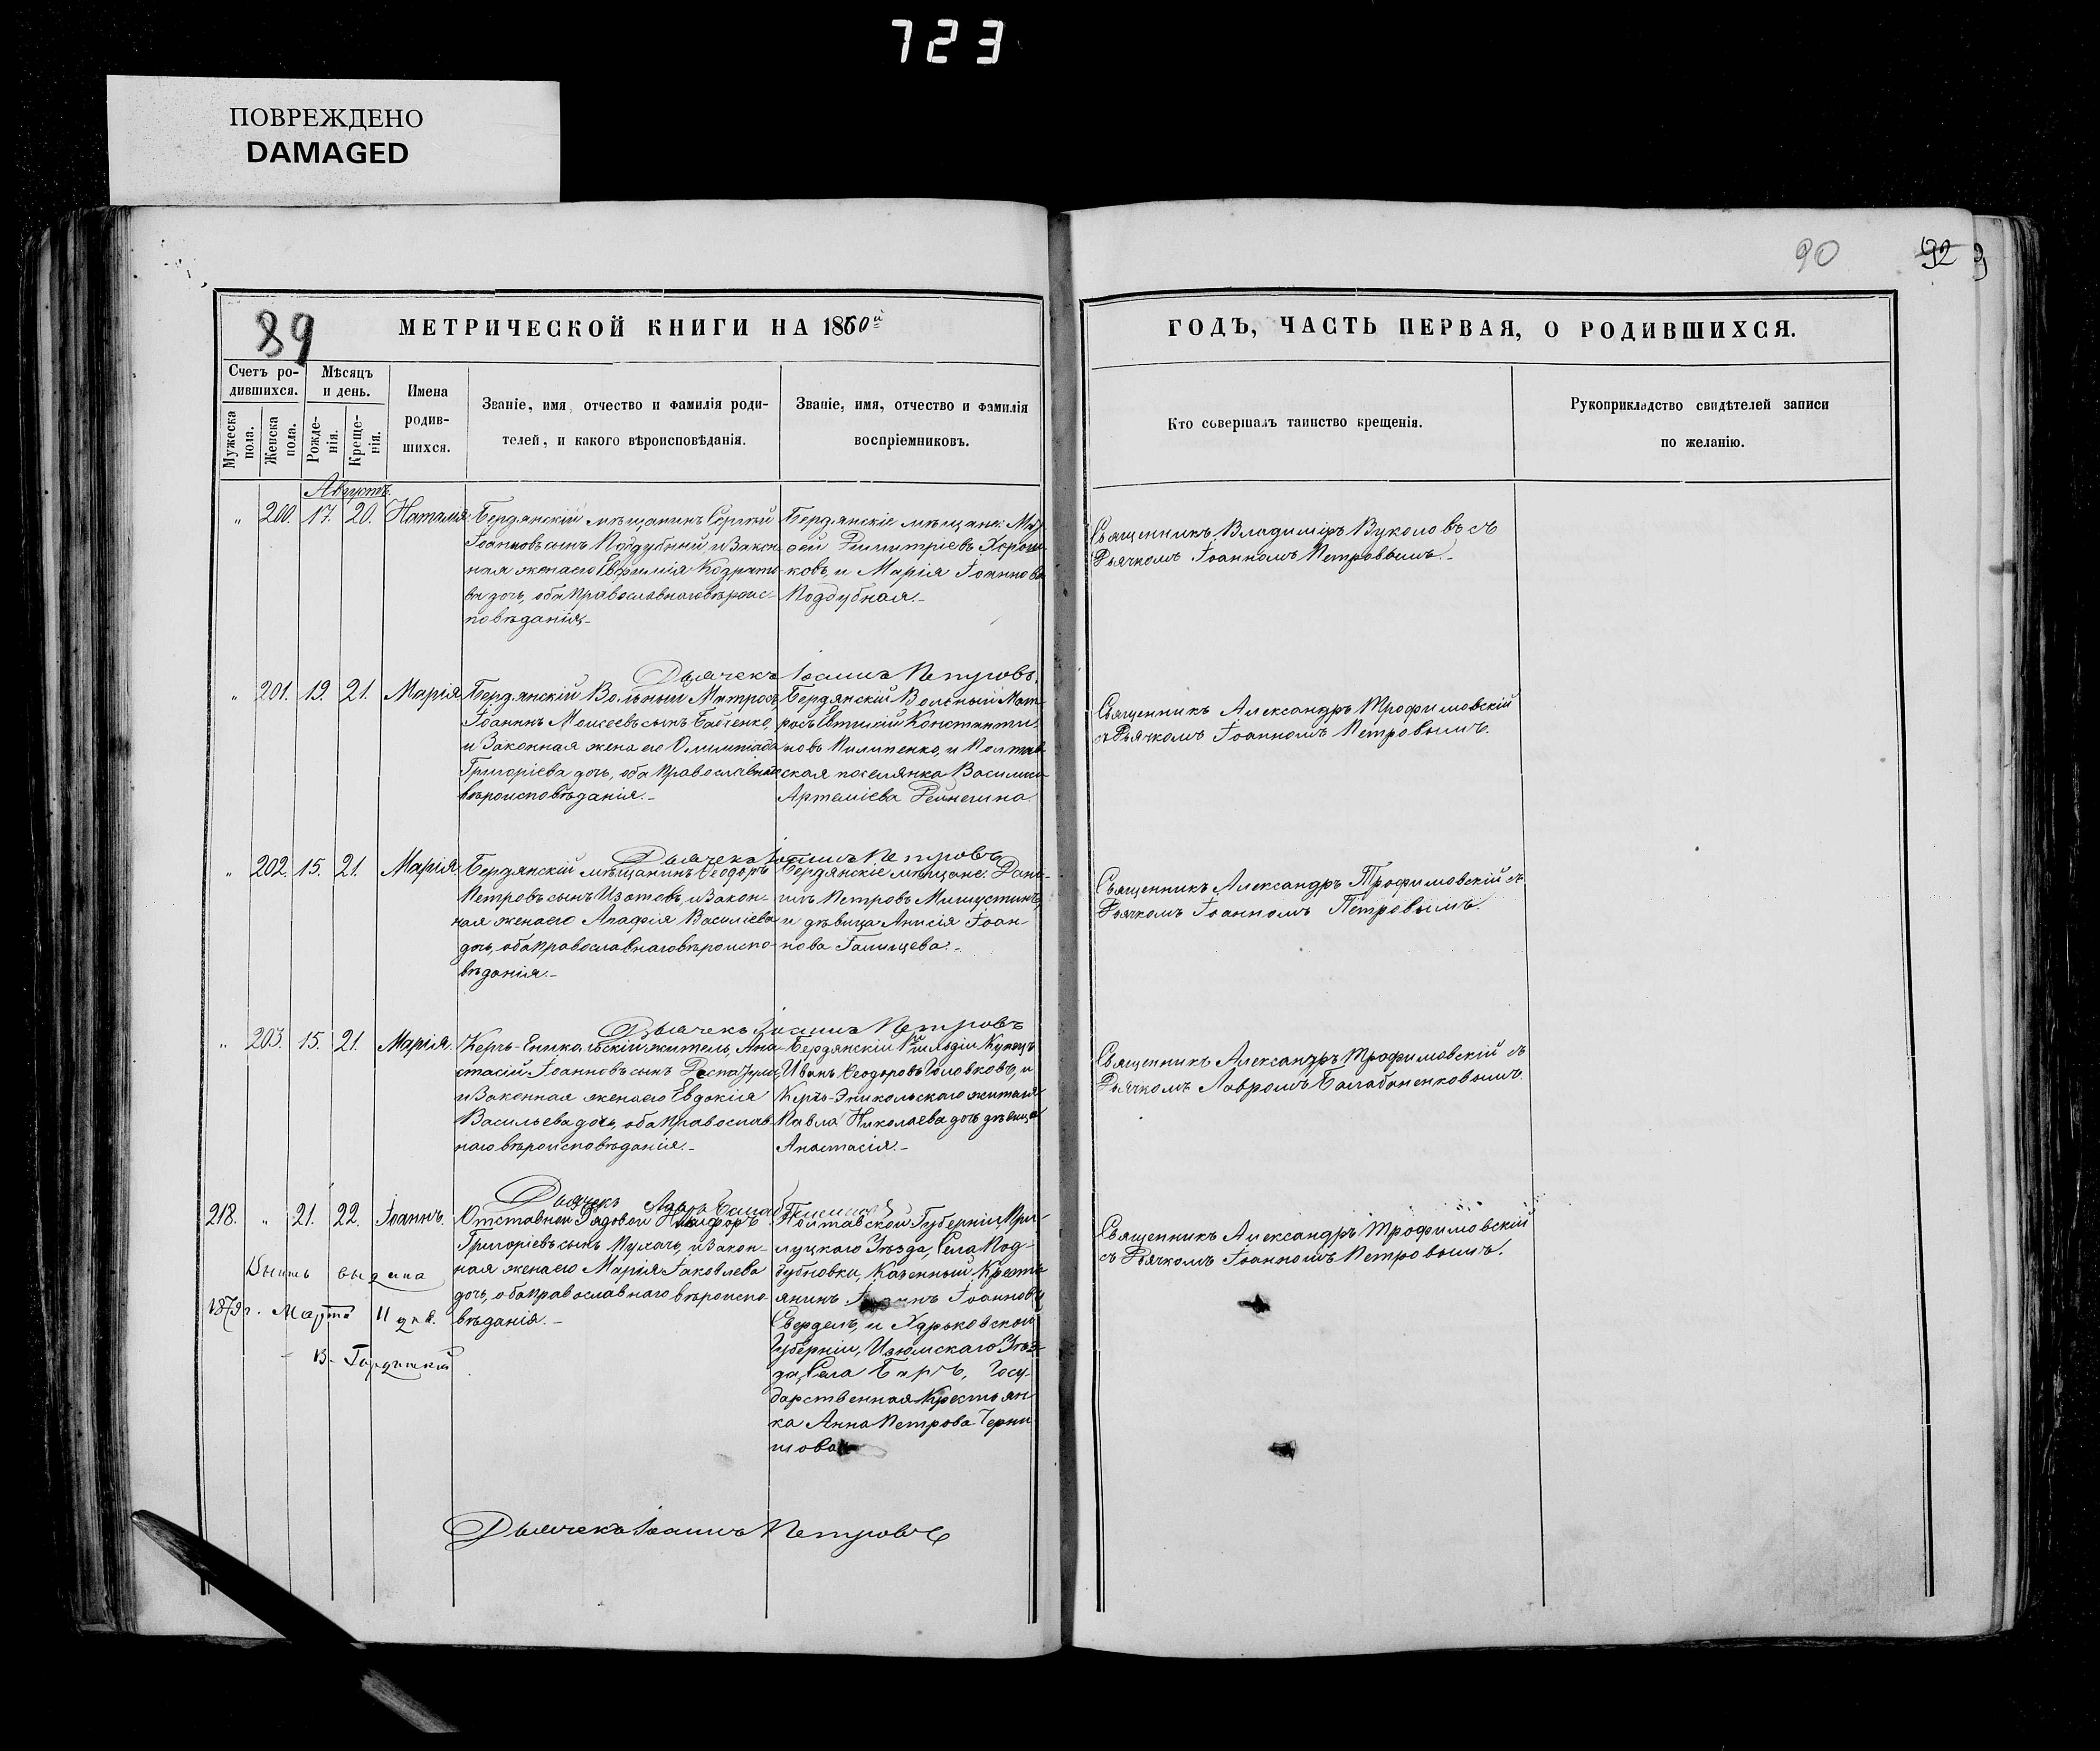 723
ПОВРЕЖДЕНО
DAMAGED
90
92
89
МЕТРИЧЕСКОЙ КНИГИ НА 1860й
ГОДЪ, ЧАСТЬ ПЕРВАЯ, О РОДИВШИХСЯ.
Счетъ ро-
дившихся.
Мужеска
пола.
Женска
пола.
Мѣсяцъ
и день.
Рожде-
нія.
Креще-
нія.
Имена
родив-
шихся.
Званіе, имя, отчество и фамилія роди-
телей, и какого вѣроисповѣданія.
Званіе, имя, отчество и фамилія
воспріемниковъ.
Кто совершалъ таинство крещенія.
Рукоприкладство свидѣтелей записи
по желанію.
Августъ.
„ 200. 17. 20. Наталія
Бердянскій мѣщанинъ Сергій
Іоанновъ сынъ Поддубный, и закон-
ная жена его Евфимія Кодрато-
ва дочь, оба православнаго вѣроис-
повѣданія.-
Бердянскіе мѣщане:
Димитріевъ
ковъ, и Марія Іоаннова
Поддубная.-
Священникъ Владиміръ Вуколовъ съ
Дьячкомъ Іоанномъ Петровымъ.-
Дьячекъ Іоаннъ Петровъ.
„ 201. 19. 21. Марія
Бердянскій Вольный Матросъ,
Іоаннъ Моисеевъ сынъ
и Законная жена его Олимпіада
Григоріева дочь, оба православнаго
вѣроисповѣданія.-
Бердянскій Вольный Мат-
росъ Евтихій Константи-
новъ Пилипенко, и Полтав-
ская поселянка Василиса
Артеміева
Священникъ Александръ Трофимовскій
съ Дьячкомъ Іоанномъ Петровымъ.
Дьячекъ Іоаннъ Петровъ
„ 202. 15. 21. Марія
Бердянскій мѣщанинъ Ѳеодоръ
Петровъ сынъ Изотовъ, и Закон-
ная жена его Агафія Василіева
дочь, оба православнаго вѣроиспо-
вѣданія.-
Бердянскіе мѣщане: Дани-
илъ Петровъ Милустинъ,
и дѣвица Анисія Іоан-
нова Галищева.-
Священникъ Александръ Трофимовскій съ
Дьячкомъ Іоанномъ Петровымъ.
Дьячекъ Іоаннъ Петровъ
„ 203. 15. 21. Марія.
Керчь-Еникольскій житель, Ана-
стасій Іоанновъ сынъ
и Законная жена его Евдокія
Васильева дочь, оба православ-
наго вѣроисповѣданія.-
Бердянскій гильдіи Купецъ
Иванъ Ѳеодоровъ Головковъ, и
Керчь-Эникольскаго жителя
Павла Николаева дочь дѣвица
Анастасія.-
Священникъ Александръ Трофимовскій съ
Дьячкомъ Лавромъ Балабаненковымъ.
Дьячекъ Лавръ
218. „ 21. 22. Іоаннъ.
Отставной Рядовой Никифоръ
Григоріевъ сынъ Мухачъ, и Закон-
ная жена его Марія Іаковлева
дочь, оба православнаго вѣроиспо-
вѣданія.-
Полтавской Губерніи, При-
луцкаго Уѣзда, Села Под-
дубновки, Казенный Кресть-
янинъ Іоаннъ Іоанновъ
Свердель, и Харьковской
Губерніи, Изюмскаго Уѣз-
да, Села Баръ, Госу-
дарственная Крестьян-
ка Анна Петрова Черни-
шова
Священникъ Александръ Трофимовскій
съ Дьячкомъ Іоанномъ Петровымъ.
выдана
1878г. Марта 11 дня.
Дьячекъ Іоаннъ Петровъ